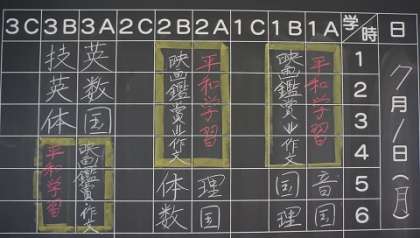 3C 3B 3A 2C 2B 2A 1C 1B 1A 学時 日
1
2
3
4
5
6
7月1日(月)
平和学習
映画鑑賞
作文
音
国
国
理
平和学習
映画鑑賞
作文
理
国
体
数
英
数
国
映画鑑賞・作文
技
英
体
平和学習